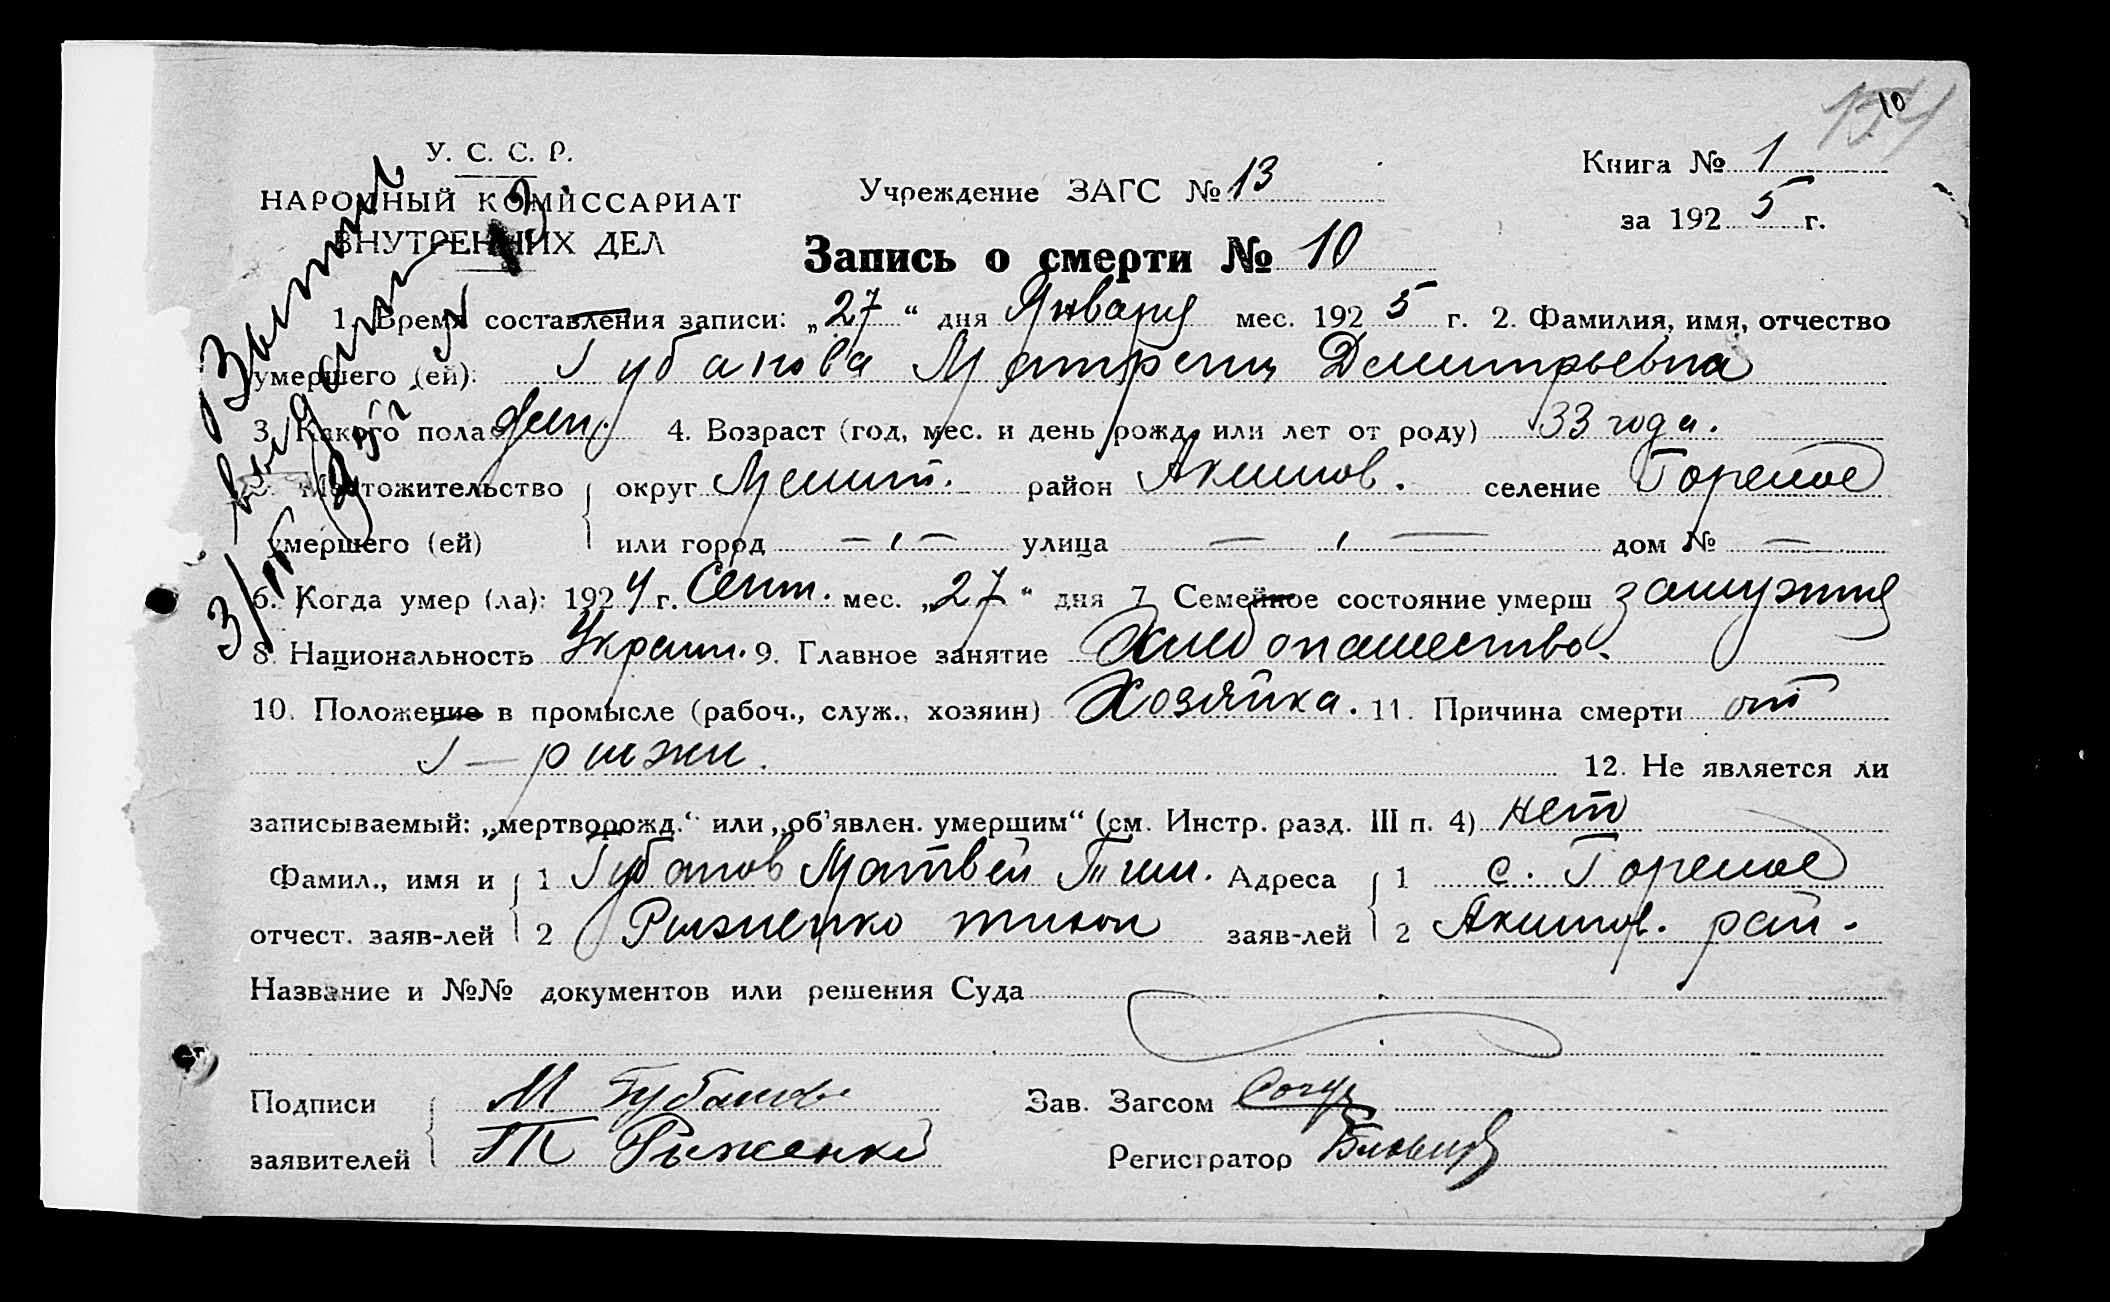 10
У. С. С. Р.
НАРОДНЫЙ КОМИССАРИАТ
ВНУТРЕННИХ ДЕЛ
Учреждение ЗАГС № 13
Книга № 1
за 1925 г.
Запись о смерти № 10
1. Время составления записи: „27“ дня Января мес. 1925 г. 2. Фамилия, имя, отчество
умершего (ей): Губанова Матрена Дмитрьевна
3. Какого пола жен. 4. Возраст (год, мес. и день рожд. или лет от роду) 33 года.
Местожительство округ Мелит. район Акимов. селение Горелое
умершего (ей) или город — „ — улица — „ — дом № —
6. Когда умер (ла): 1924 г. Сент. мес. „27“ дня 7 Семейное состояние умерш замужняя
8. Национальность Украин. 9. Главное занятие Хлебопашество.
10. Положение в промысле (рабоч., служ., хозяин) Хозяйка. 11. Причина смерти от
12. Не является ли
записываемый: „мертворожд.“ или „об’явлен. умершим“ (см. Инстр. разд. III п. 4) нет
Фамил., имя и 1 Губанов Матвей Тим. Адреса 1 с. Горелое
отчест. заяв-лей 2 Рыженко Тихон заяв-лей 2 Акимов. рай.
Название и №№ документов или решения Суда
Подписи М Губанов Зав. Загсом
заявителей Т Рыженко Регистратор